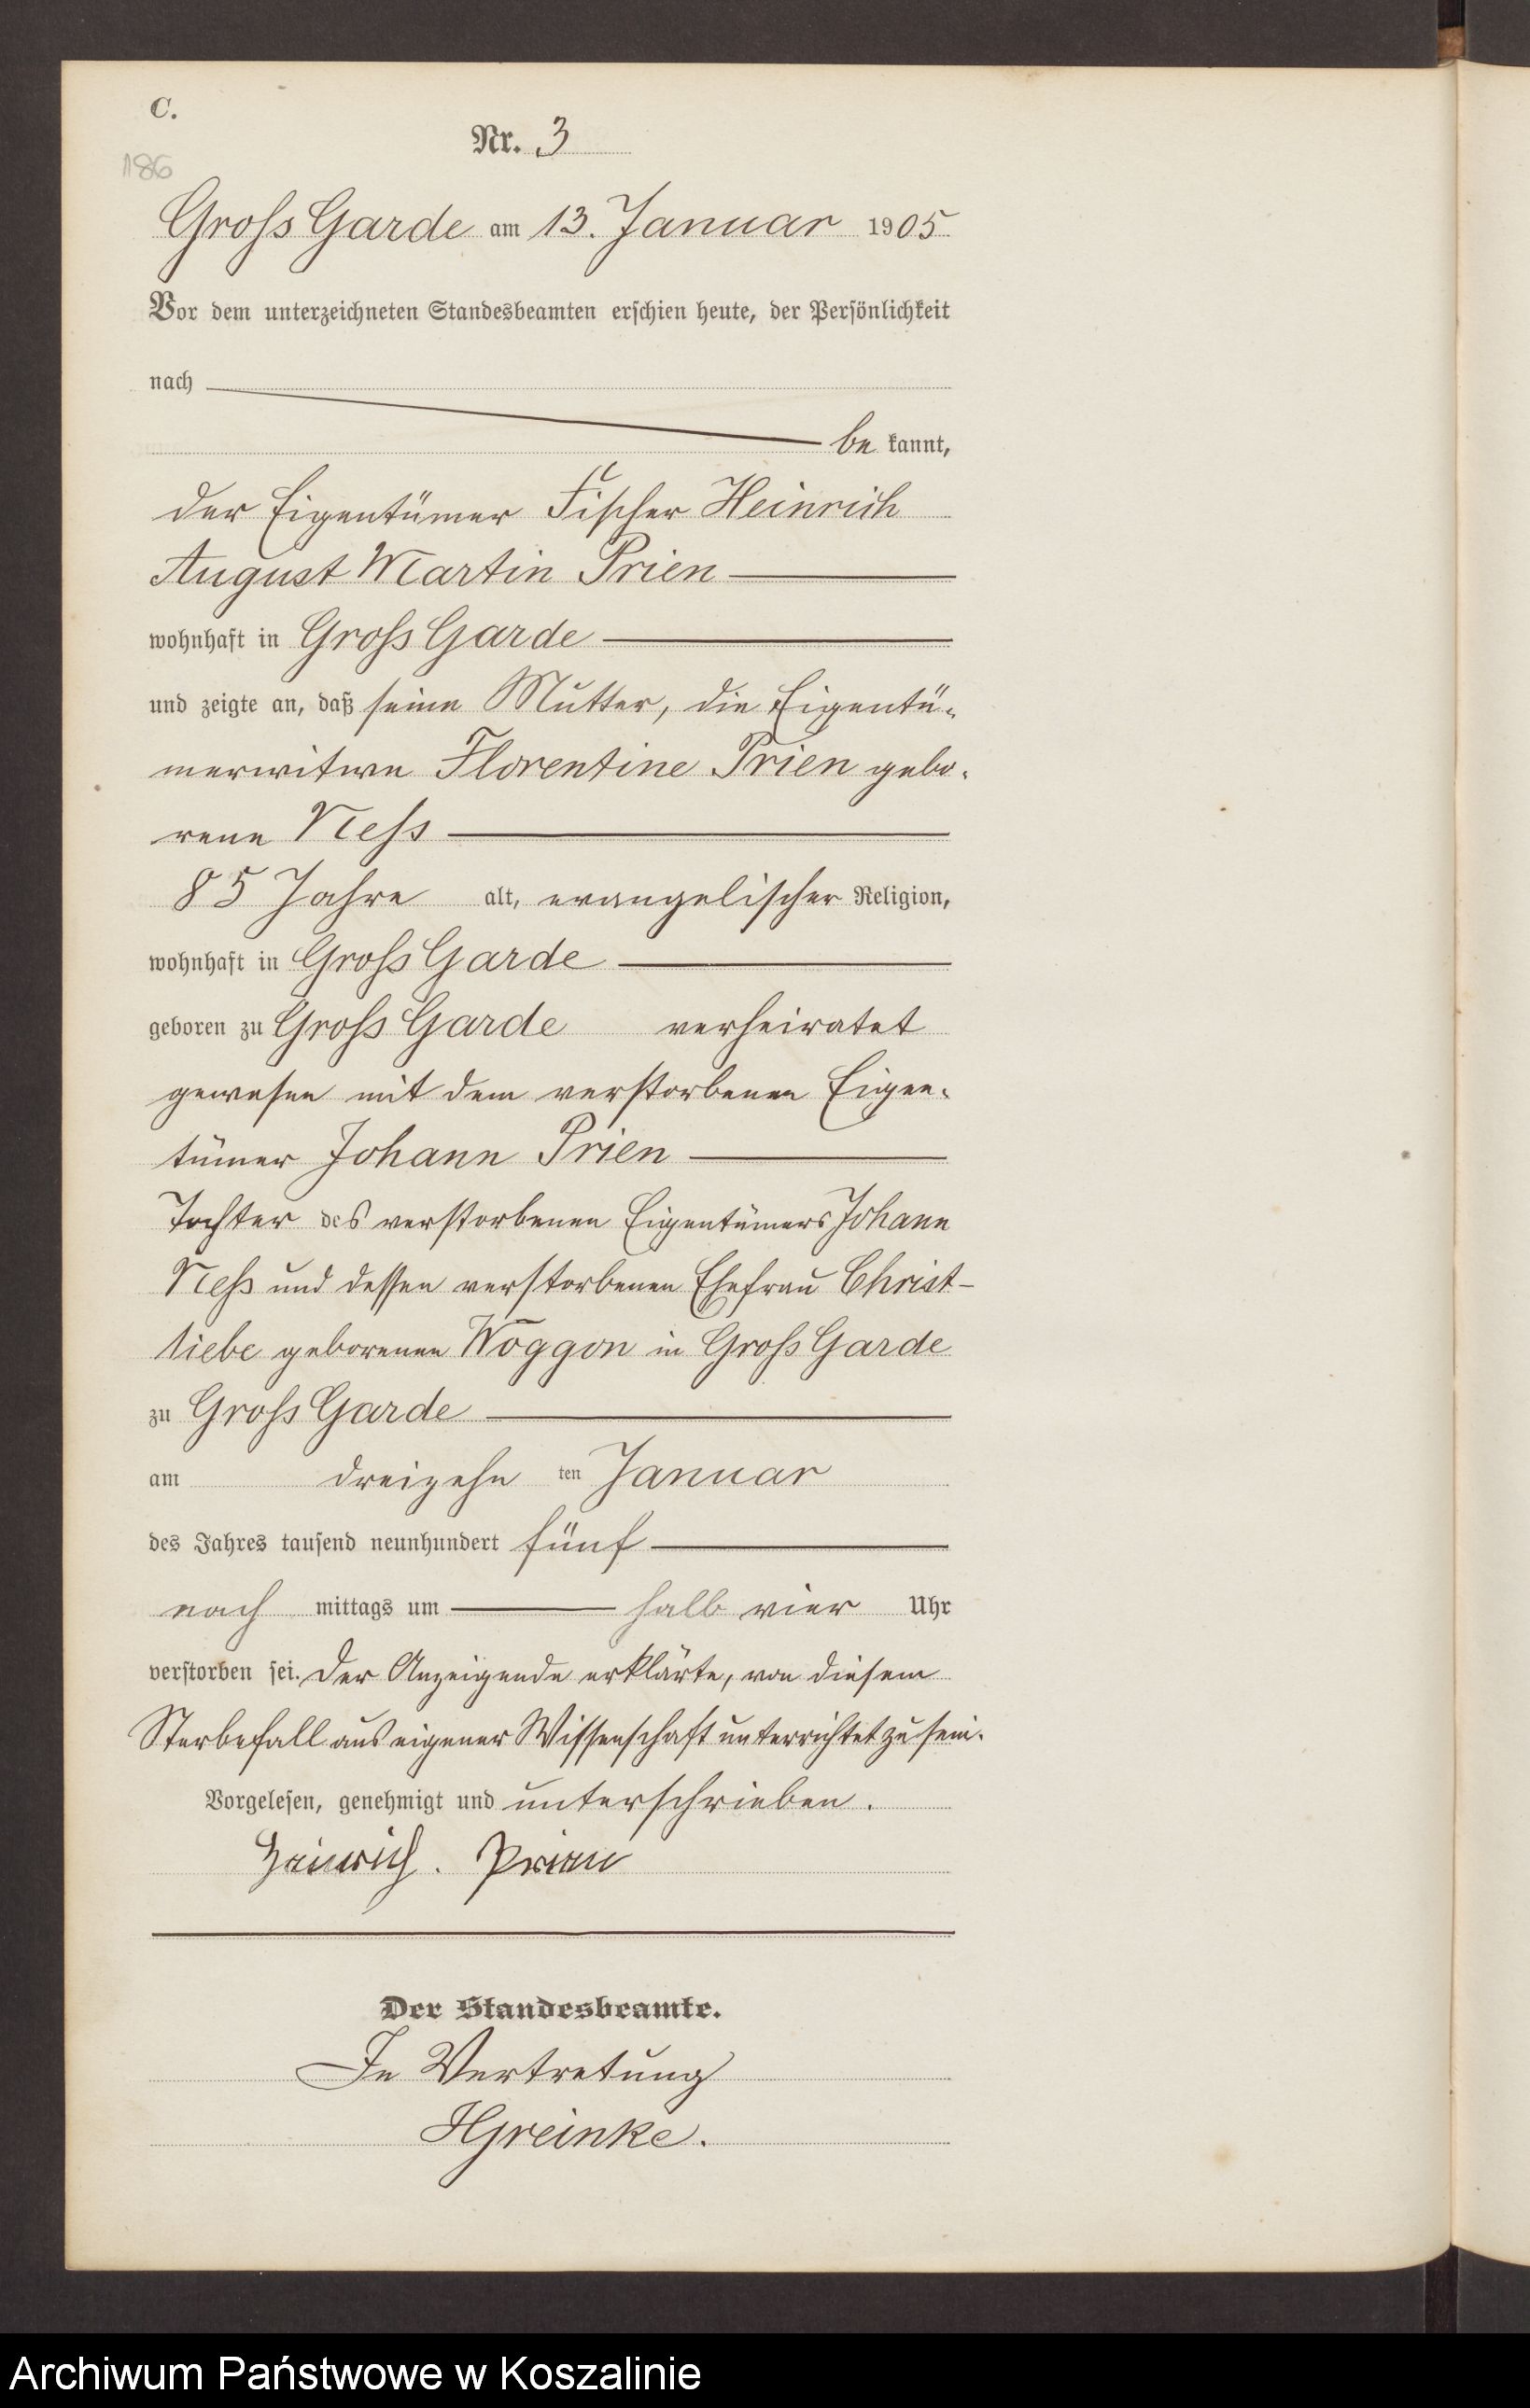 C.
Nr. 3
186
Gross Garde am 13. Januar 1905
Vor dem unterzeichneten Standesbeamten erschien heute, der Persönlichkeit
nach
be kannt,
der Eigentümer Fischer Heinrich
August Martin Prien
wohnhaft in Gross Garde
und zeigte an, daß seine Mutter, die Eigentü-
merwitwe Florentine Prien gebo-
rene Ness
85 Jahre alt, evangelischer Religion,
wohnhaft in Gross Garde
geboren zu Gross Garde verheiratet
gewesen mit dem verstorbenen Eigen-
tümer Johann Prien
Tochter des verstorbenen Eigentümers Johann
Ness und dessen verstorbenen Ehefrau Christ-
liebe geborenen Woggon in Gross Garde
zu Gross Garde
am dreizehn ten Januar
des Jahres tausend neunhundert fünf
nach mittags um halb vier Uhr
verstorben sei. Der Anzeigende erklärte, von diesem
Sterbefall aus eigener Wissenschaft unterrichtet zu sein.
Vorgelesen, genehmigt und unterschrieben.
Heinrich. Prien
Der Standesbeamte.
In Vertretung
HGreinke.
Archiwum Państwowe w Koszalinie